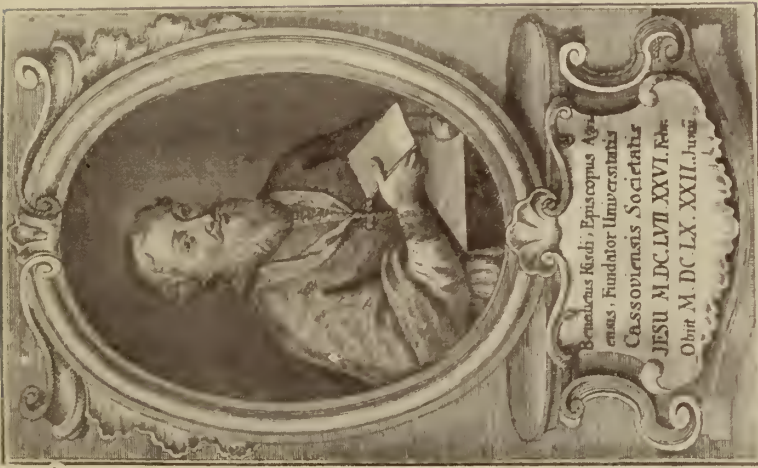 Benedictus Kisdi, Episcopus Agri
ensis, Fundator Universitatis
Cassoviensis Societatis
JESU M DC LVII XXVI. Febr.
Obiit M. DC LX. XXII. Junii